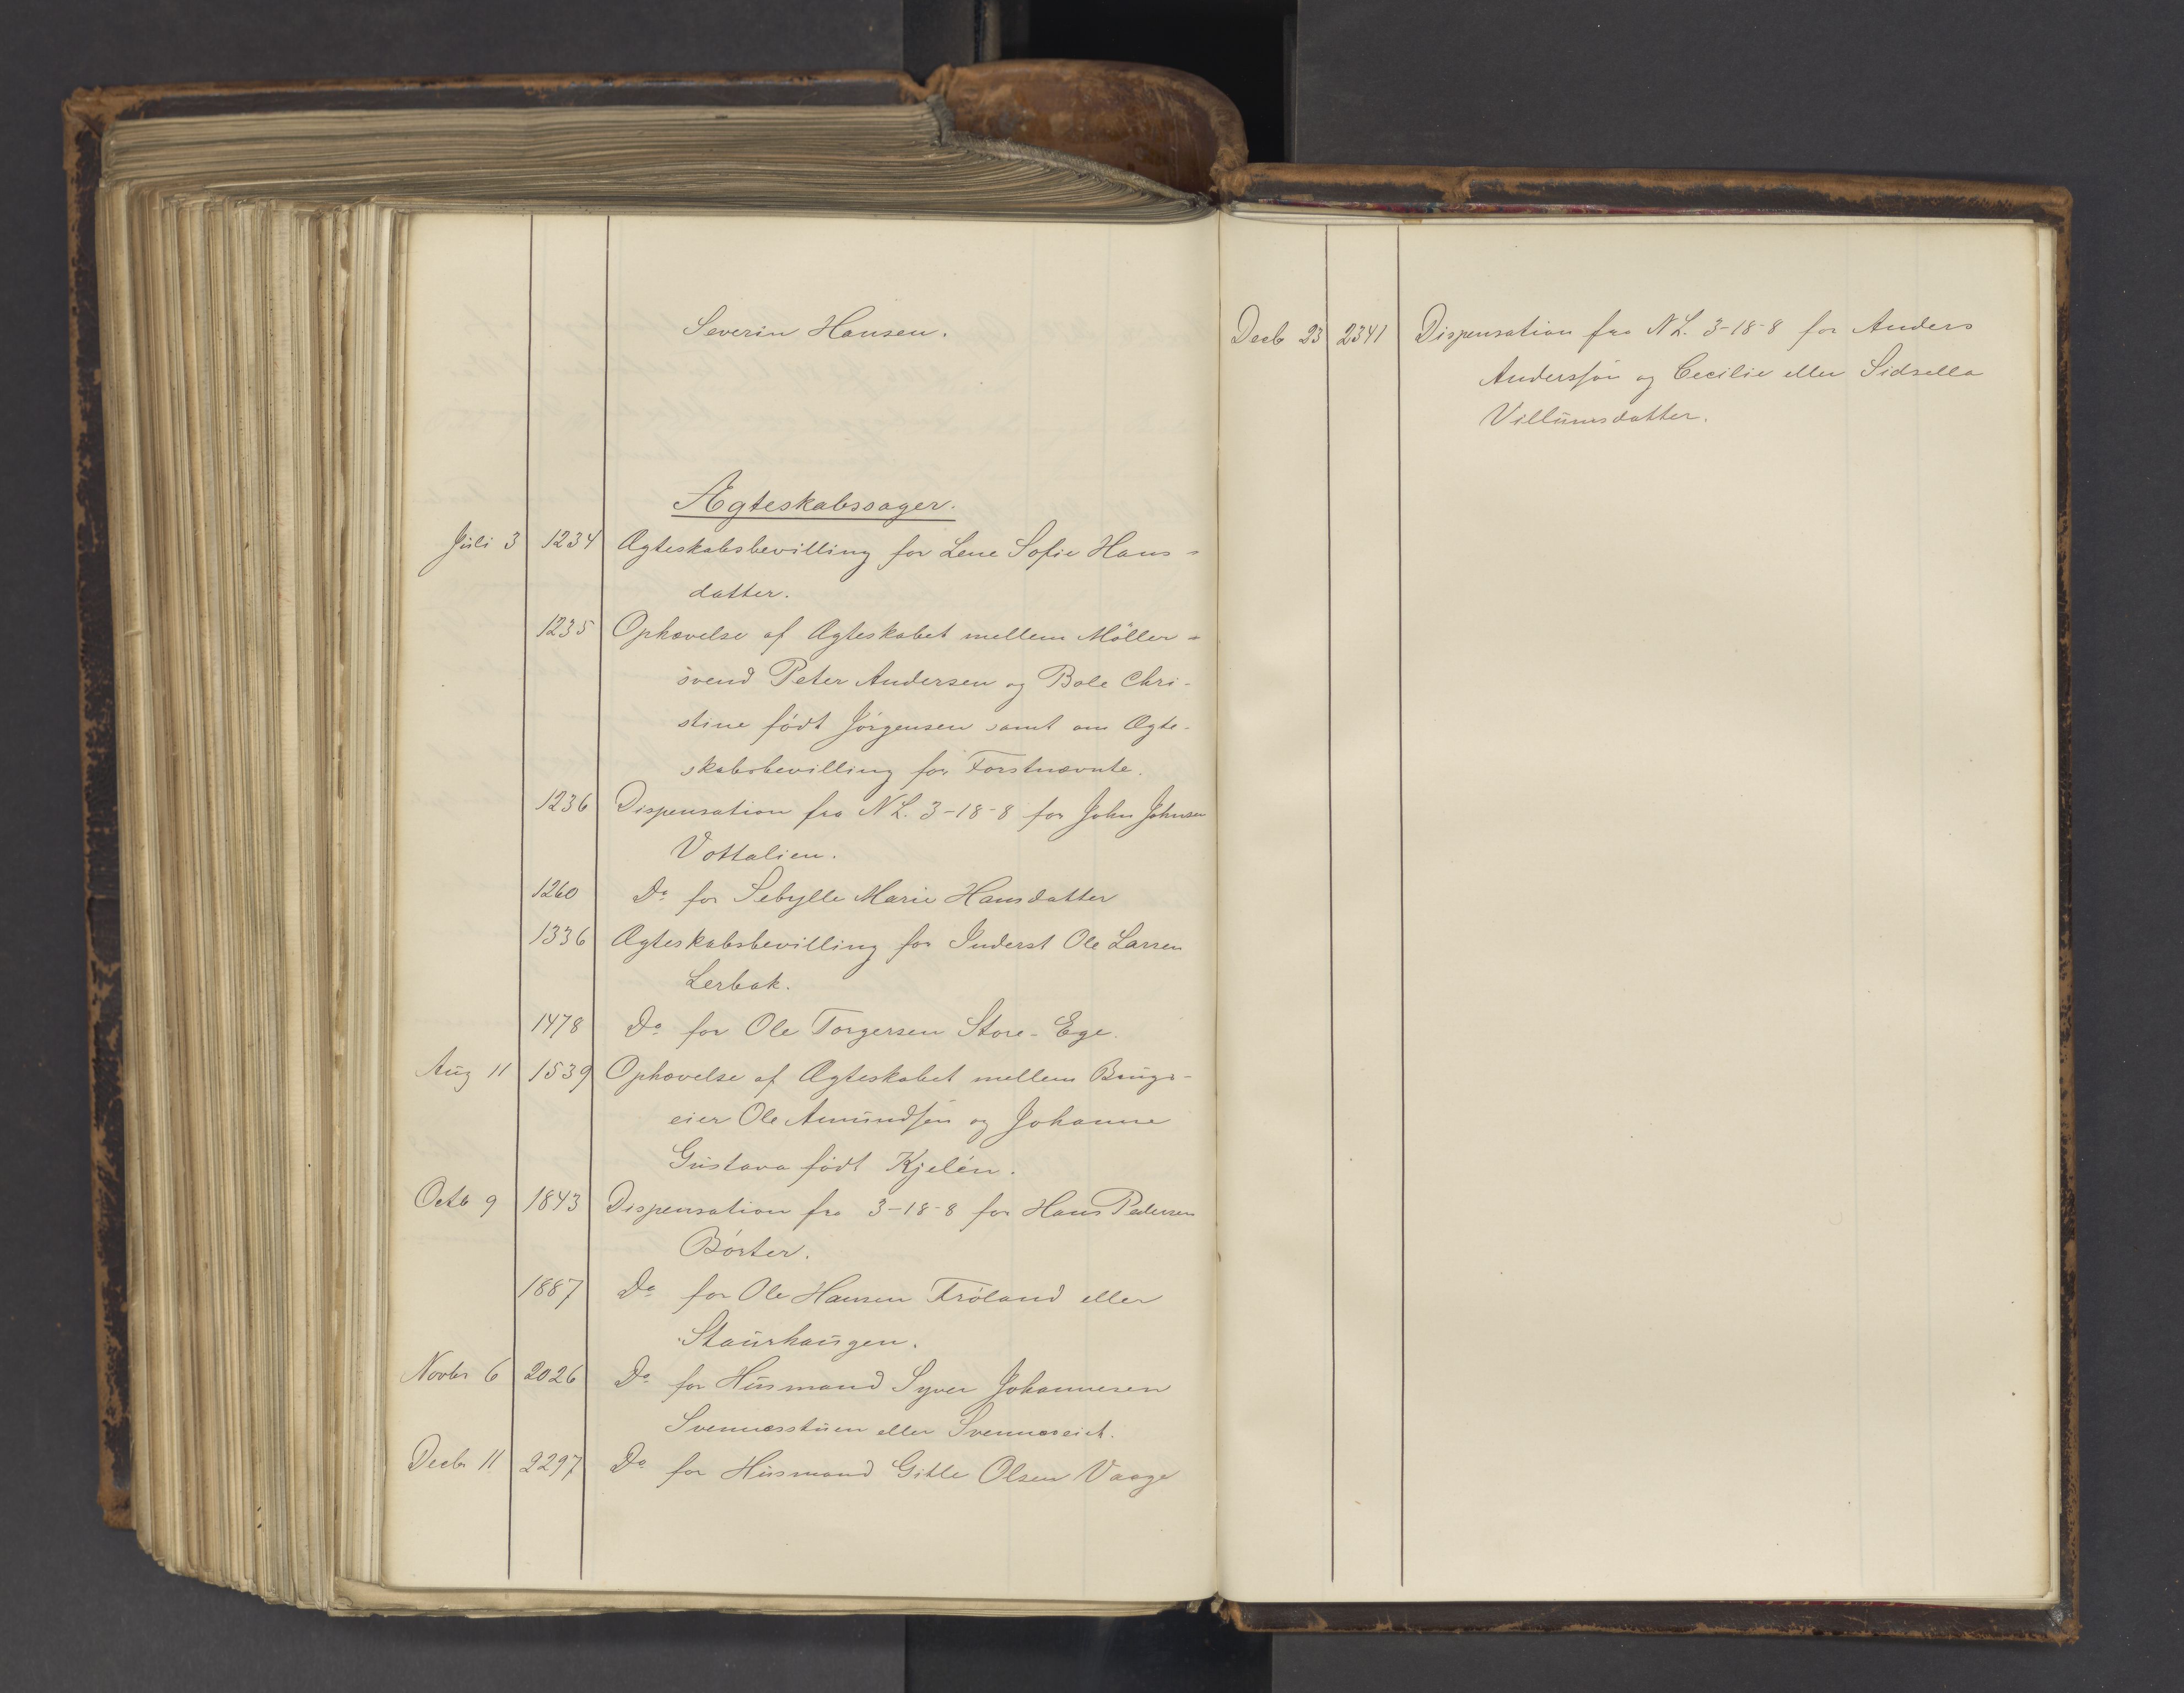 Severin Hansen.
Ægteskabssager.
Juli 3 1234 Ægteskabsbevilling for Lene Sofie Hans-
datter.
1235 Ophævelse af Ægteskabet mellem Möller-
svend Peter Andersen og Bole Chri-
stine födt Jörgensen samt om Ægte-
skabsbevilling for Förstnævnte.
1236 Dispensation fra N L. 3-18-8 for John Johnsen
Vottalien.
1260 Do for Sebylle Marie Hansdatter
1336 Ægteskabsbevilling for Inderst Ole Larsen
Lerbak.
1478 Do for Ole Torgersen Store-Ege.
Aug 11 1539 Ophævelse af Ægteskabet mellem Brugs-
eier Ole Amundsen og Johanne
Gustava födt Kjelén.
Octb 9 1843 Dispensation fra 3-18-8 for Hans Pedersen
Börter.
1887 Do for Ole Hansen Fröland eller
Staurhaugen.
Novbr 6 2026 Do for Husmand Syver Johannesen
Svennesstuen eller Svenneseiet.
Decbr 11 2297 Do for Husmand Gitle Olsen Vaage
Decb 23 2341 Dispensation fra N L. 3-18-8 for Anders
Anderssön og Cecilie eller Sidsella
Villumsdatter.